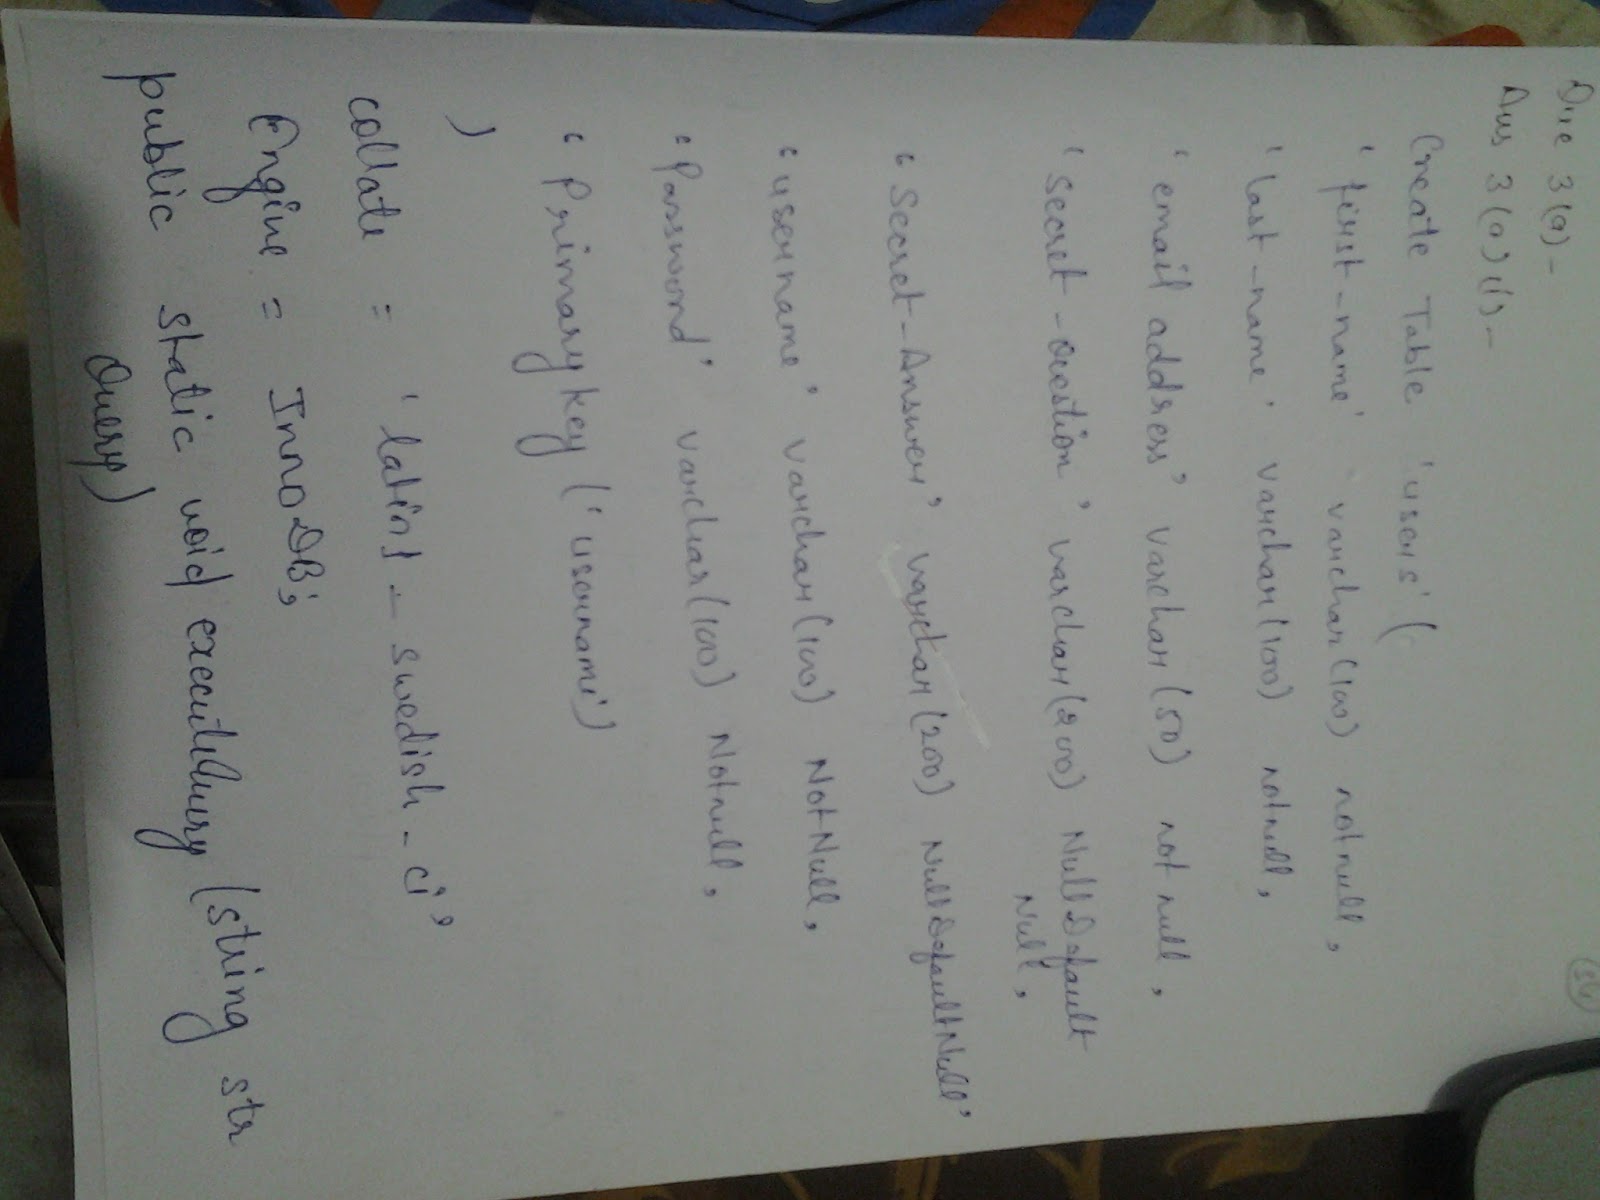 (54)
Que 3(a) -
Ans 3(a)(1) -
Create Table 'users' (
'first-name' varchar(100) not null,
'last-name' varchar(100) notnull,
'email address' varchar(50) not null,
'secret-Question' varchar(200) Null Default
Null,
'Secret-Answer' varchar(200) Null Default Null,
'username' varchar(100) Not Null,
'Password' varchar(100) Not null,
' Primary key ('username')
)
collate = 'latin1-swedish-ci',
Engine = InnoDB;
public static void executeQuery (string str
Query)